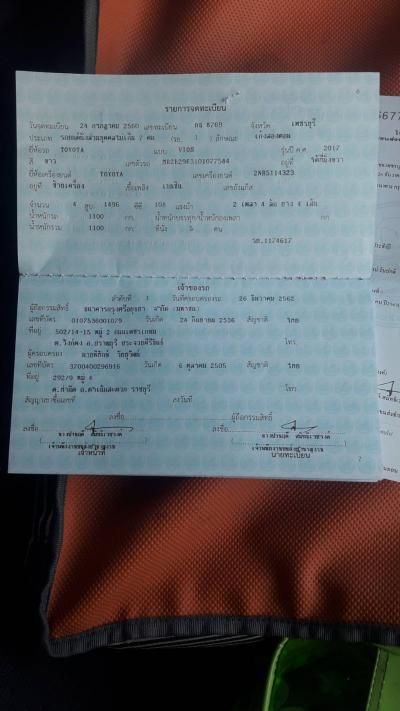 6
รายการจดทะเบียน
วันจดทะเบียน 24 กรกฎาคม 2560 เลขทะเบียน กธ 8769 จังหวัด เพชรบุรี
ประเภท รถยนต์นั่งส่วนบุคคลไม่เกิน 7 คน (รย. 1 ) ลักษณะ เก๋งสองตอน
ยี่ห้อรถ TOYOTA แบบ VIOS รุ่นปี ค.ศ. 2017
สี ขาว เลขตัวรถ อยู่ที่
ยี่ห้อเครื่องยนต์ TOYOTA เลขเครื่องยนต์ 2NR5114323
อยู่ที่ ซ้ายเครื่อง เชื้อเพลิง เบนซิน เลขถังแก๊ส
จำนวน 4 สูบ 1496 ซีซี 108 แรงม้า 2 เพลา 4 ล้อ ยาง 4 เส้น
น้ำหนักรถ 1100 กก. น้ำหนักบรรทุก/น้ำหนักลงเพลา กก.
น้ำหนักรวม 1100 กก. ที่นั่ง คน
1174617
เจ้าของรถ
ลำดับที่ 1 วันที่ครอบครองรถ 26 ธันวาคม 2562
ผู้ถือกรรมสิทธิ์ ธนาคารกรุงศรีอยุธยา จำกัด (มหาชน)
เลขที่บัตร 0107536001079 วันเกิด 24 กันยายน 2536 สัญชาติ ไทย
ที่อยู่ 502/14-15 หมู่ 2 ถนนเพชรเกษม
โทร.
ผู้ครอบครอง
เลขที่บัตร 3700400296916 วันเกิด 6 ตุลาคม 2505 สัญชาติ ไทย
ที่อยู่ 292/9 หมู่ 4
ราชบุรี โทร.
สัญญาเช่าซื้อเลขที่ ลงวันที่
ลงชื่อ ผู้ถือกรรมสิทธิ์
ลงชื่อ ลงชื่อ
เจ้าหน้าที่ นายทะเบียน
7